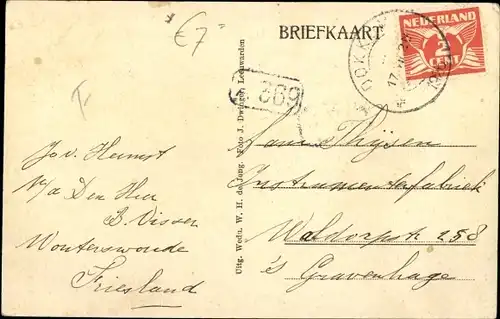 €7
BRIEFKAART
NEDERLAND
2
CENT
DOKK
Jo v. Hemert
p/a Den Heer
S. Visser
Wouterswoude
Friesland
Uitg. Wedu. W. H. de Jong. Foto J. Dwinger, Leeuwarden
Sam Thijsen
Instrumentenfabriek
Waldorpst 258
's Gravenhage